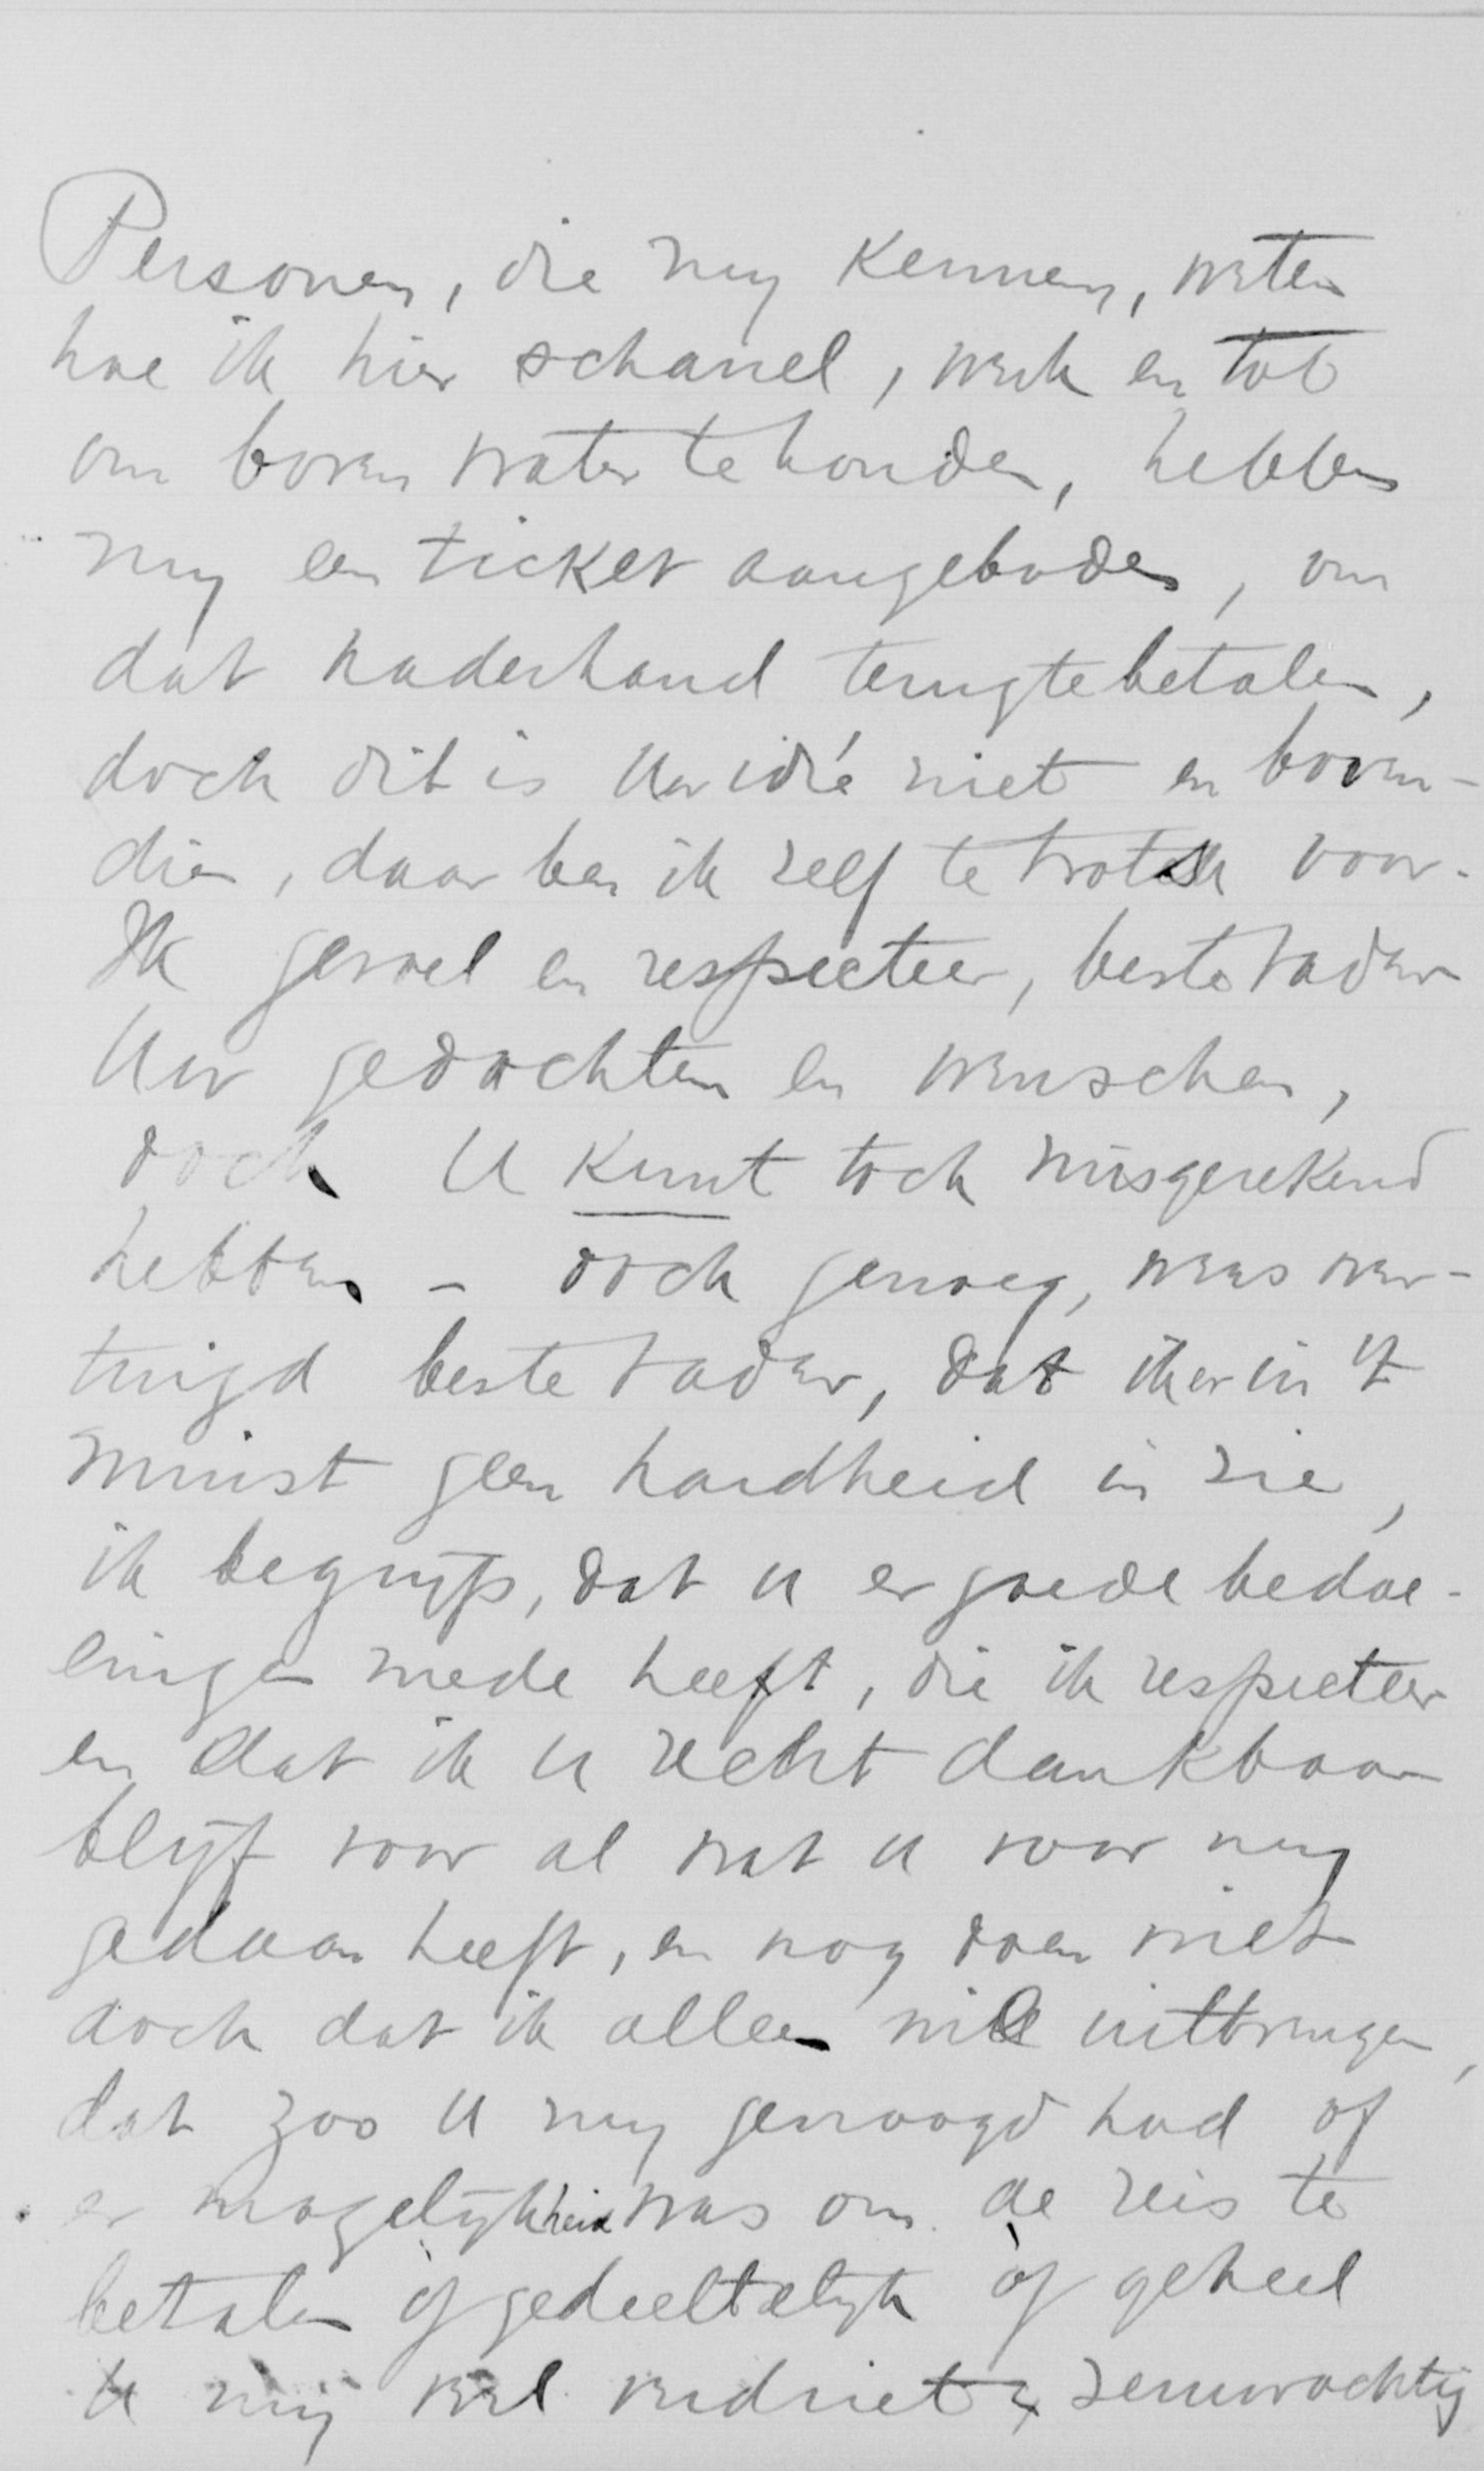 Personen, die my kennen, weten
hoe ik hier scharrel, werk en tob
om boven water te houden, hebben
my een ticket aangeboden, om
dat naderhand terugtebetalen,
doch dit is Uw idé niet en boven-
dien, daar ben ik zelf te trotsch voor.
Ik gevoel en respecteer, beste Vader
Uw gedachten en wenschen,
doch U kunt toch misgerekend
hebben - doch genoeg, wees over-
tuigd beste Vader, dat ik er in 't
minst geen hardheid in zie,
ik begryp, dat U er goede bedoe-
lingen mede heeft, die ik respecteer
en dat ik U recht dankbaar
blyf voor al wat U voor my
gedaan heeft, en nog doen wilt
doch dat ik alleen wil uitbrengen,
dat zoo U my gevraagd had of
er mogelykheid was om de reis te
betalen òf gedeeltelyk òf geheel
U mij veel verdriet & zenuwachtig